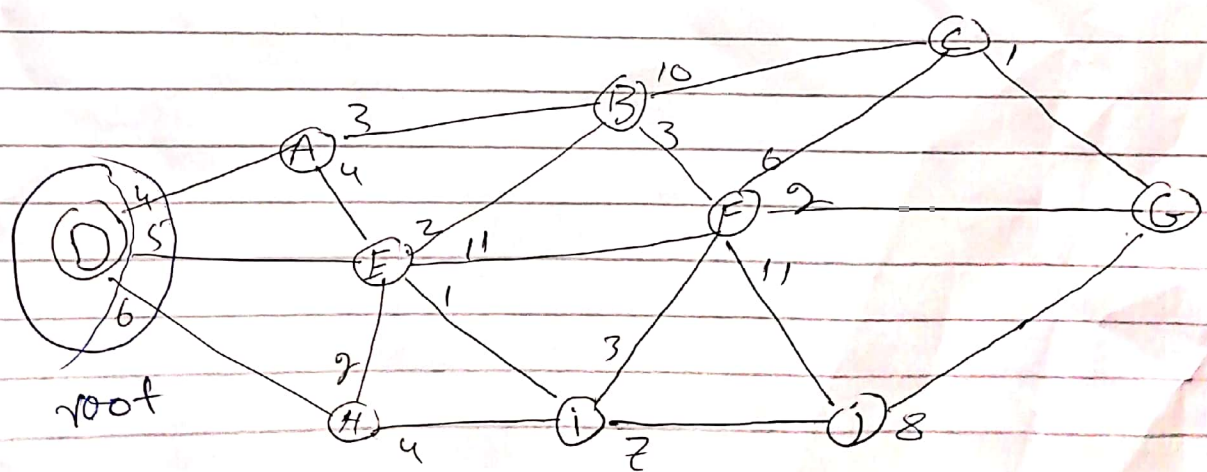 C 1
B 10
3
A 3
4
6
4
D 5
E 2
11
1
F 2
11
G
6
2
3
root
H 4
i 7
j 8